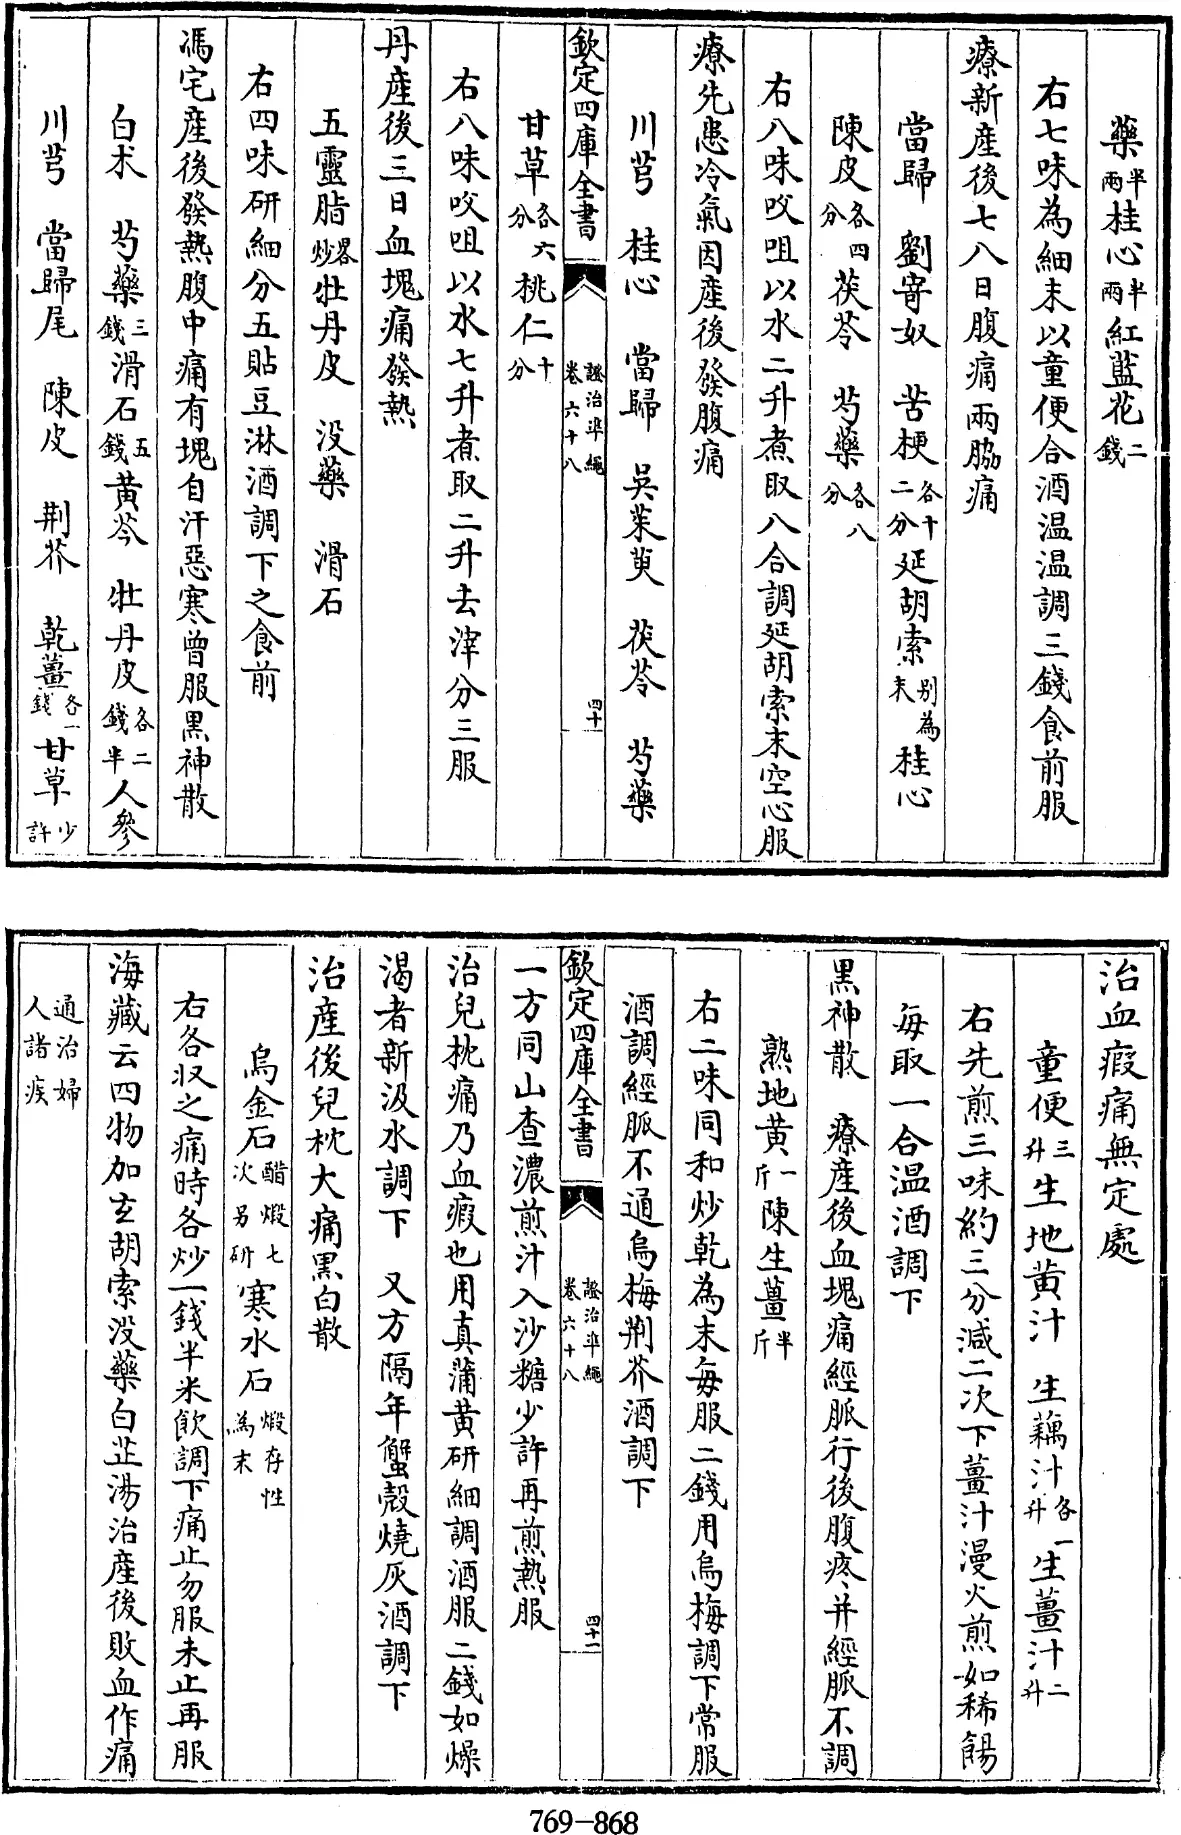 藥半兩桂心半兩紅藍花二錢
右七味為細末以童便合酒温温調三錢食前服
療新産後七八日腹痛兩脇痛
當歸　劉寄奴　苦梗各十二分延胡索别為末桂心
陳皮各四分茯苓　芍藥各八分
右八味㕮咀以水二升煮取八合調延胡索末空心服
療先患冷氣因産後發腹痛
川芎　桂心　當歸　吳茱萸　茯苓　芍藥
欽定四庫全書　證治準繩卷六十八　四十
甘草各六分桃仁十分
右八味㕮咀以水七升煮取二升去滓分三服
丹産後三日血塊痛發熱
五靈脂畧炒牡丹皮　没藥　滑石
右四味研細分五貼豆淋酒調下之食前
馮宅産後發熱腹中痛有塊自汗惡寒曾服黑神散
白术　芍藥三錢滑石五錢黄芩　牡丹皮各二錢半人參
川芎　當歸尾　陳皮　荆芥　乾薑各一錢甘草少許
治血瘕痛無定處
童便三升生地黄汁　生藕汁各一升生薑汁二升
右先煎三味約三分減二次下薑汁漫火煎如稀餳
每取一合温酒調下
黑神散　療産後血塊痛經脈行後腹疼并經脈不調
熟地黄一斤陳生薑半斤
右二味同和炒乾為末每服二錢用烏梅調下常服
酒調經脈不通烏梅荆芥酒調下
欽定四庫全書　證治準繩卷六十八　四十一
一方同山查濃煎汁入沙糖少許再煎熱服
治兒枕痛乃血瘕也用真蒲黄研細調酒服二錢如燥
渴者新汲水調下　又方隔年蟹殻燒灰酒調下
治産後兒枕大痛黑白散
烏金石醋煅七次另研寒水石煅存性為末
右各收之痛時各炒一錢半米飲調下痛止勿服未止再服
海藏云四物加玄胡索没藥白芷湯治産後敗血作痛
通治婦人諸疾
769-868